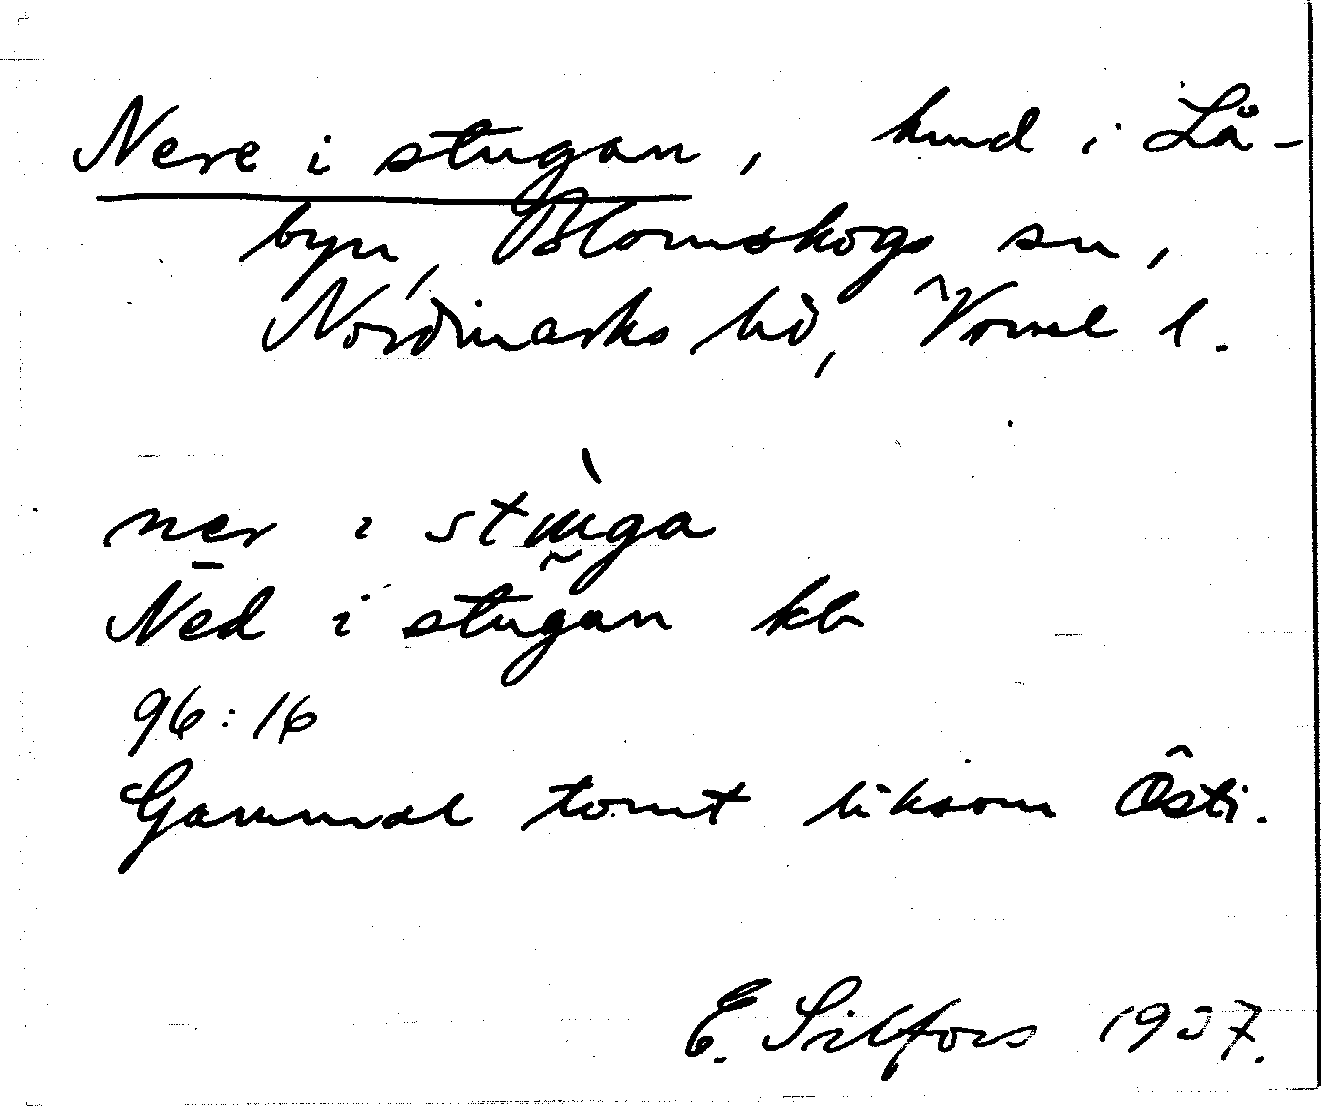 Nere i stugan, hmd i Lå-
byn, Blomskogs sn,
Nordmarks hd, Vrml l.
ner i stuga
Ned i stugan kb
96:16
Gammal tomt liksom Östi.
E. Silfors 1937.